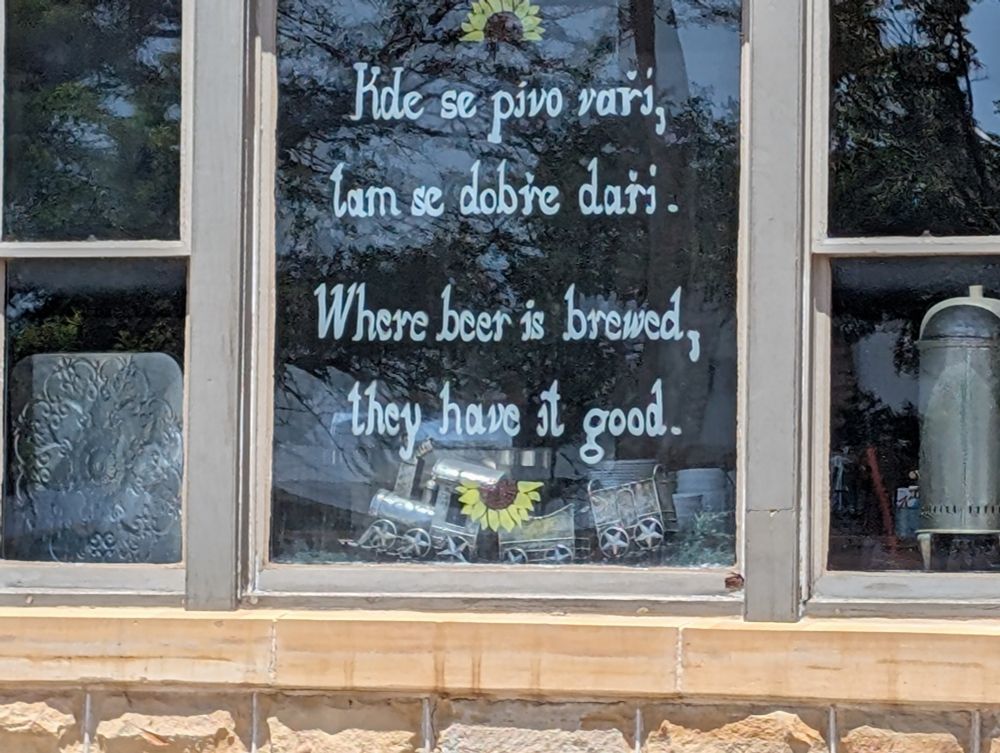 Kde se pivo vaři,
tam se dobře daři.
Where beer is brewed,
they have it good.